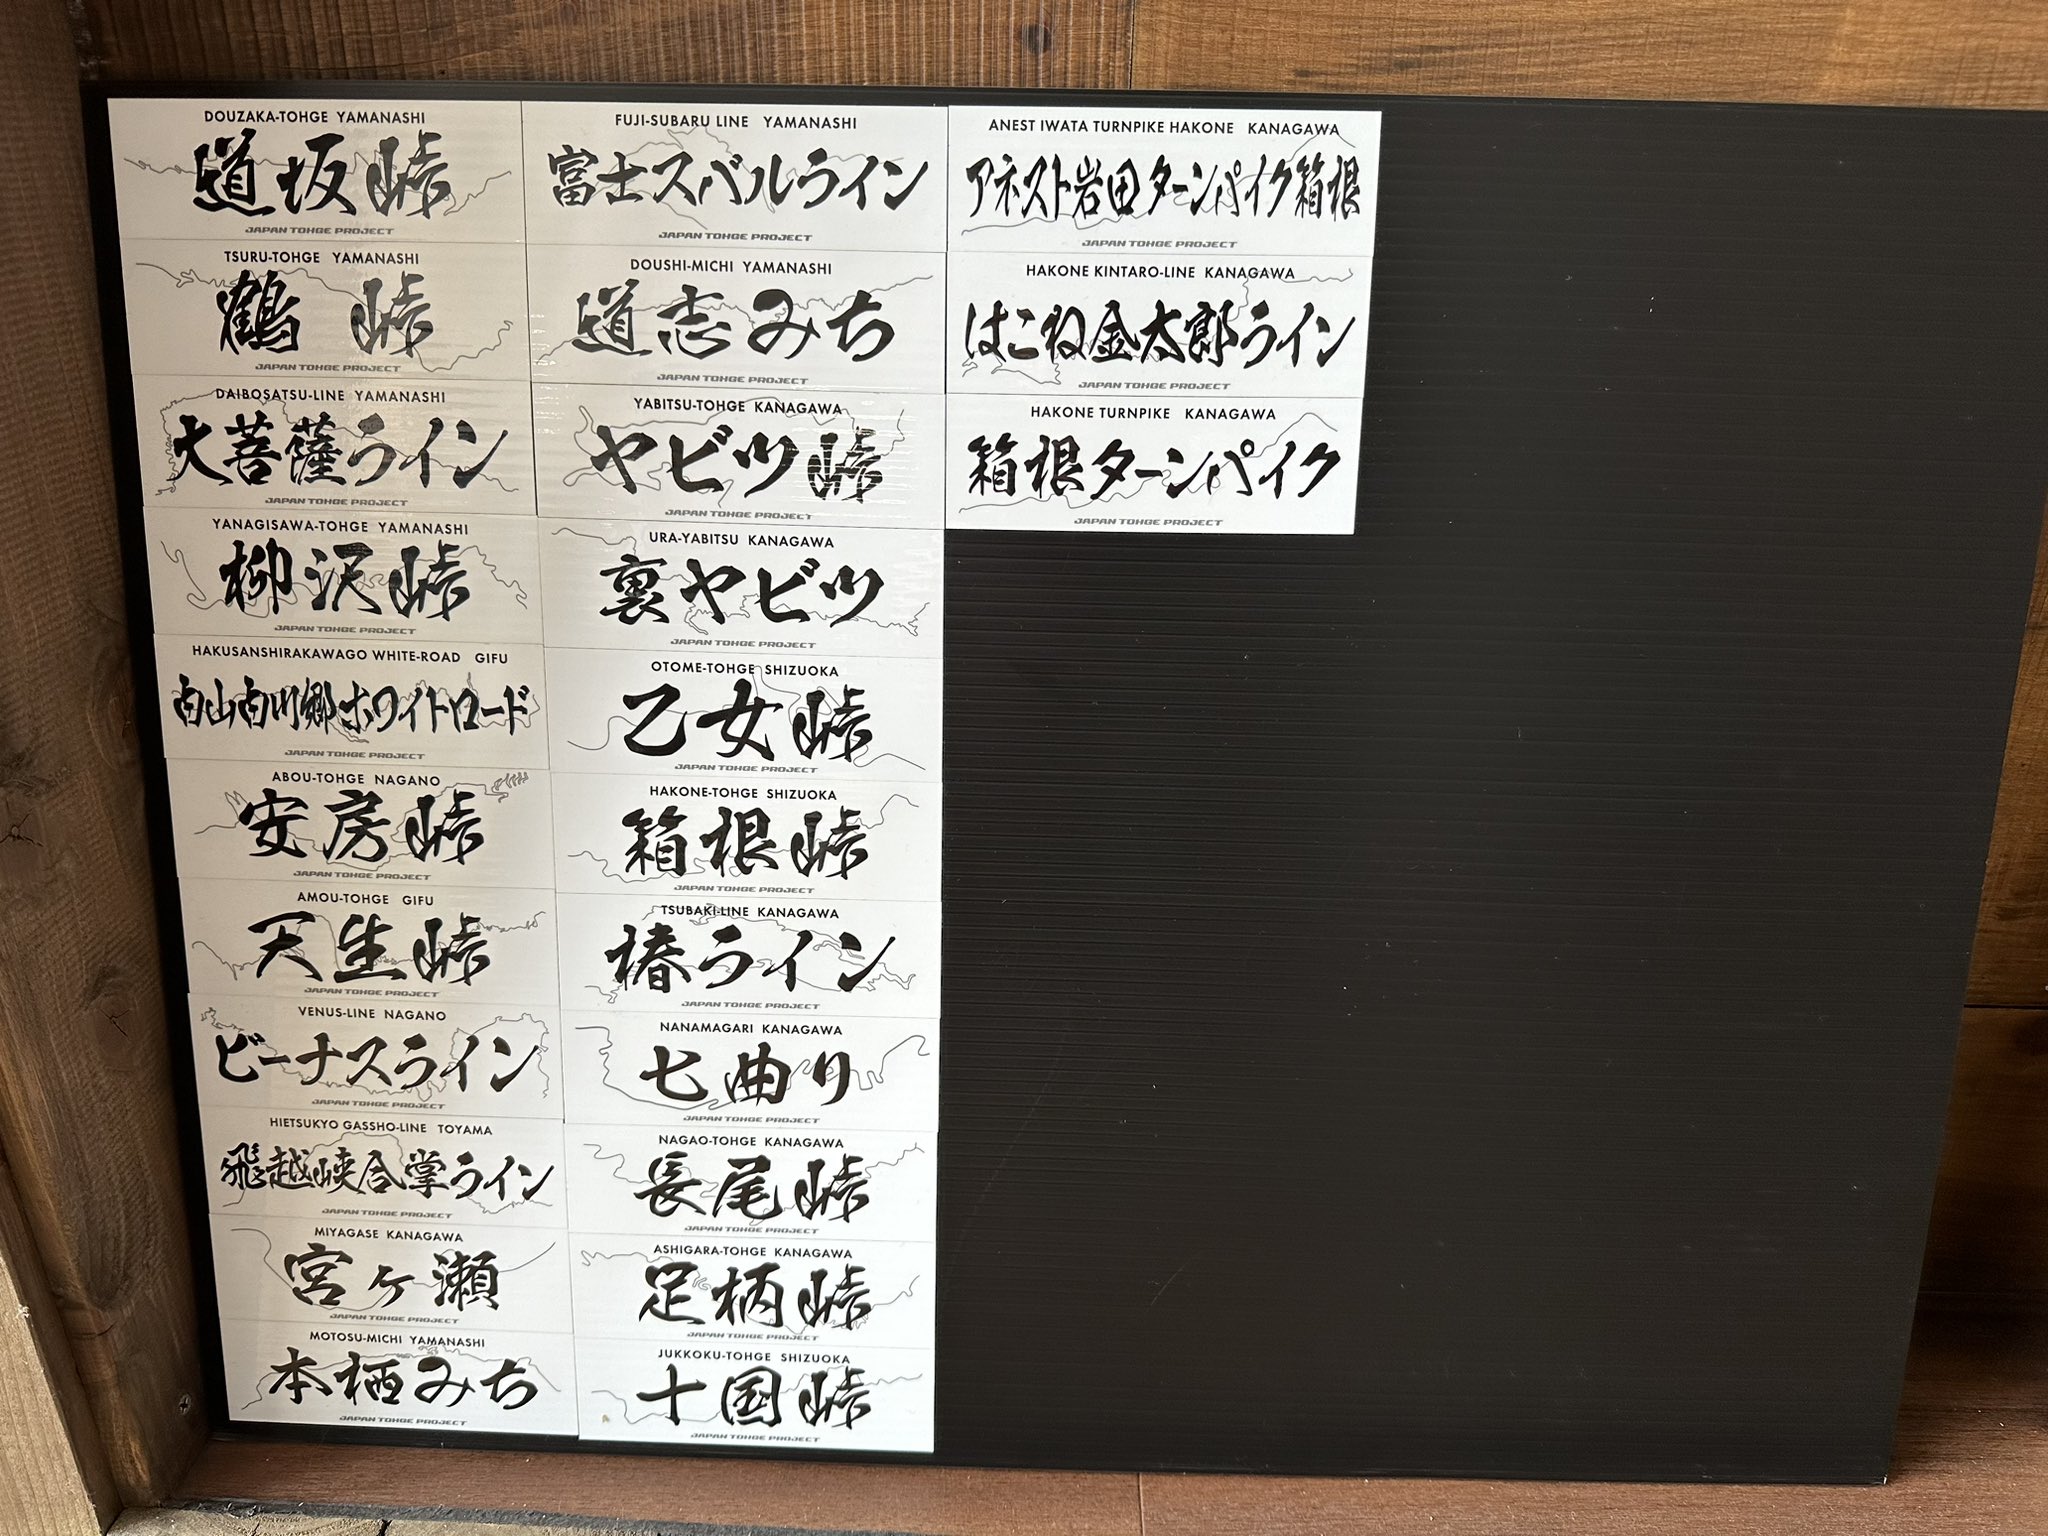 DOUZAKA-TOHGE YAMANASHI
道坂峠
JAPAN TOHGE PROJECT
TSURU-TOHGE YAMANASHI
鶴峠
JAPAN TOHGE PROJECT
DAIBOSATSU-LINE YAMANASHI
大菩薩ライン
JAPAN TOHGE PROJECT
YANAGISAWA-TOHGE YAMANASHI
柳沢峠
JAPAN TOHGE PROJECT
HAKUSANSHIRAKAWAGO WHITE-ROAD GIFU
白山白川郷ホワイトロード
JAPAN TOHGE PROJECT
ABOU-TOHGE NAGANO
安房峠
JAPAN TOHGE PROJECT
AMOU-TOHGE GIFU
天生峠
JAPAN TOHGE PROJECT
VENUS-LINE NAGANO
ビーナスライン
JAPAN TOHGE PROJECT
HIETSUKYO GASSHO-LINE TOYAMA
飛越峡合掌ライン
JAPAN TOHGE PROJECT
MIYAGASE KANAGAWA
宮ヶ瀬
JAPAN TOHGE PROJECT
MOTOSU-MICHI YAMANASHI
本栖みち
JAPAN TOHGE PROJECT
FUJI-SUBARU LINE YAMANASHI
富士スバルライン
JAPAN TOHGE PROJECT
DOUSHI-MICHI YAMANASHI
道志みち
JAPAN TOHGE PROJECT
YABITSU-TOHGE KANAGAWA
ヤビツ峠
JAPAN TOHGE PROJECT
URA-YABITSU KANAGAWA
裏ヤビツ
JAPAN TOHGE PROJECT
OTOME-TOHGE SHIZUOKA
乙女峠
JAPAN TOHGE PROJECT
HAKONE-TOHGE SHIZUOKA
箱根峠
JAPAN TOHGE PROJECT
TSUBAKI-LINE KANAGAWA
椿ライン
JAPAN TOHGE PROJECT
NANAMAGARI KANAGAWA
七曲り
JAPAN TOHGE PROJECT
NAGAO-TOHGE KANAGAWA
長尾峠
JAPAN TOHGE PROJECT
ASHIGARA-TOHGE KANAGAWA
足柄峠
JAPAN TOHGE PROJECT
JUKKOKU-TOHGE SHIZUOKA
十国峠
JAPAN TOHGE PROJECT
ANEST IWATA TURNPIKE HAKONE KANAGAWA
アネスト岩田ターンパイク箱根
JAPAN TOHGE PROJECT
HAKONE KINTARO-LINE KANAGAWA
はこね金太郎ライン
JAPAN TOHGE PROJECT
HAKONE TURNPIKE KANAGAWA
箱根ターンパイク
JAPAN TOHGE PROJECT